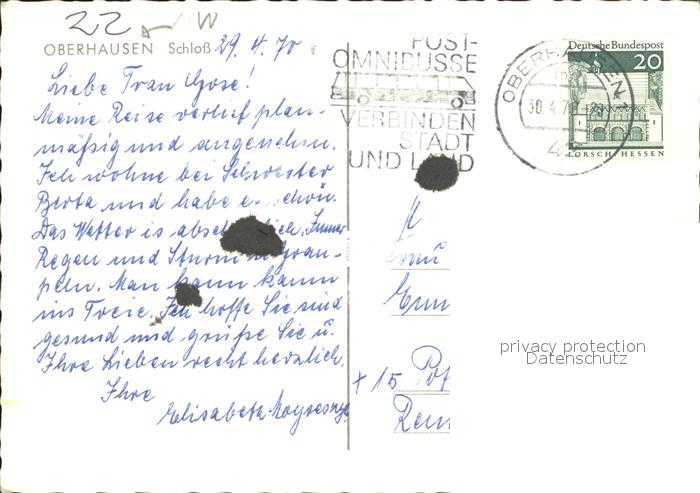 22 NW
OBERHAUSEN Schloß 29. 4. 70
Liebe Frau Gose!
Meine Reise verlief plan-
mäßig und angenehm.
Ich wohne bei Schwester
Berta und habe es schön.
Das Wetter is Immer
Regen und Sturm
peln. Man kann kaum
ins Freie. Ich hoffe Sie sind
gesund und grüße Sie u.
Ihre Lieben recht herzlich.
Ihre
Elisabeth
POST-
OMNIBUSSE
VERBINDEN
STADT
UND LAND
OBERHAUSEN
30.4.70
42
Deutsche Bundespost
20
LORSCH/HESSEN
Frau
+ 15
privacy protection
Datenschutz